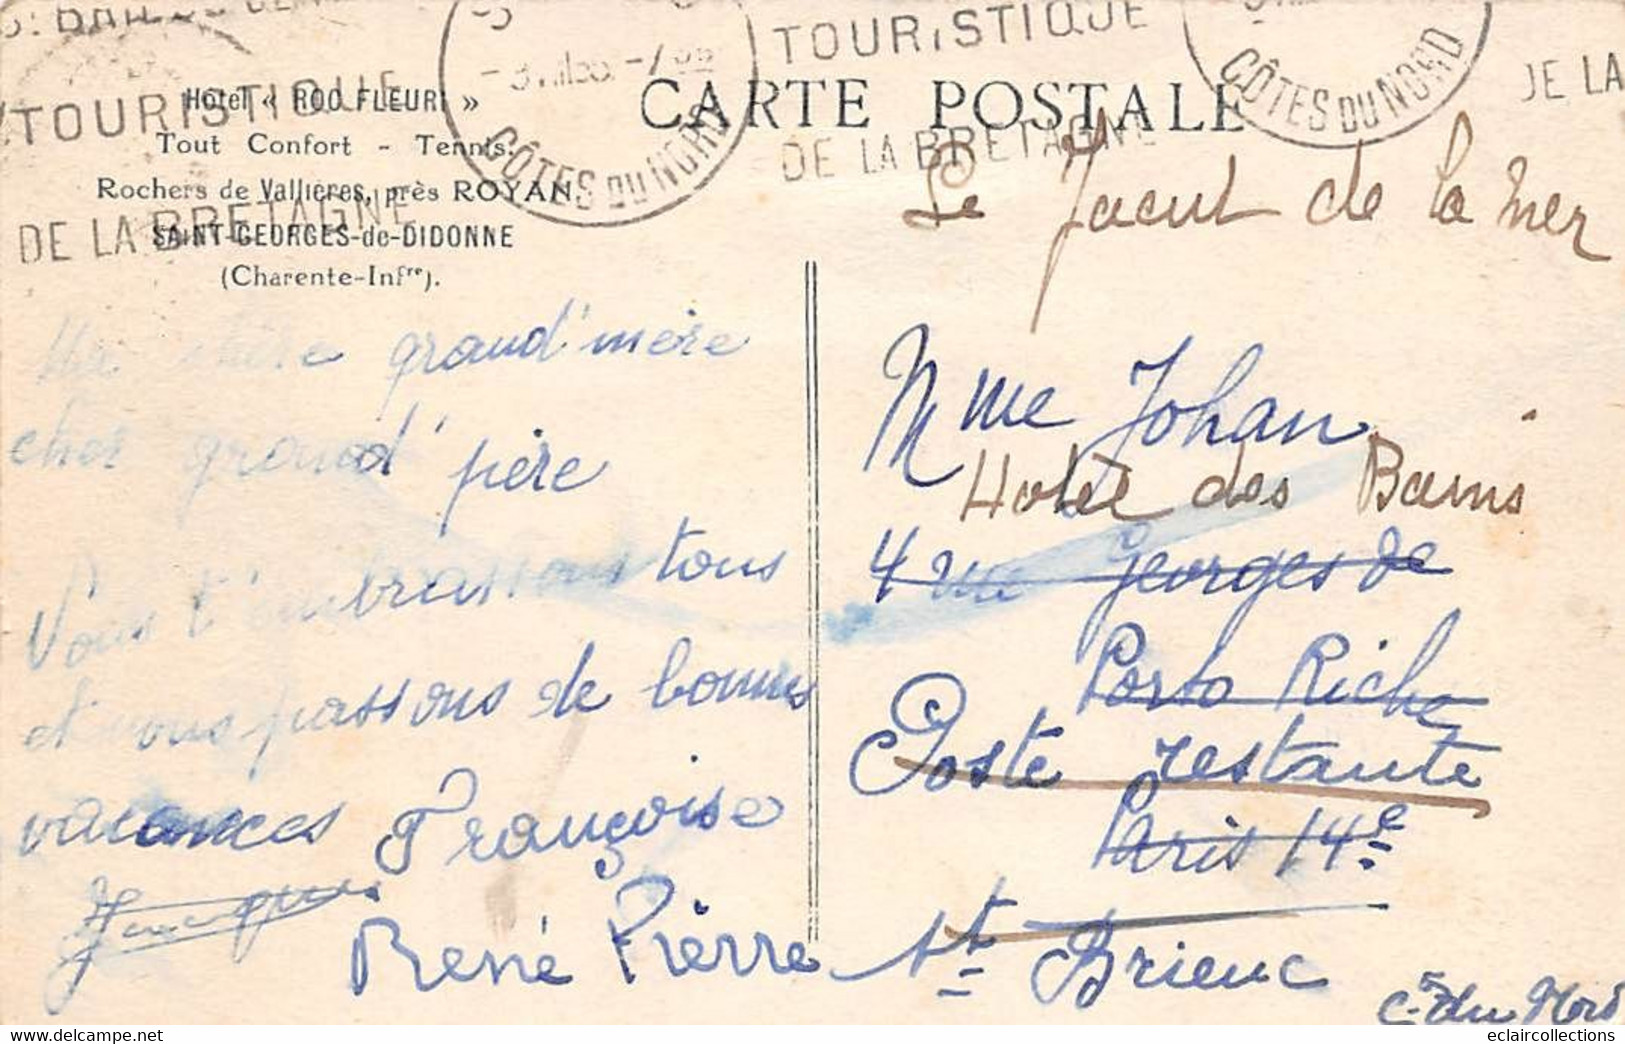 TOURISTIQUE
DE LA BRETAGNE
CÔTES DU NORD
TOURISTIQUE
DE LA BRETAGNE
CÔTES DU NORD
DE LA
Hôtel « ROC FLEURI »
Tout Confort - Tennis.
Rochers de Vallières, près ROYAN
SAINT-GEORGES-de-DIDONNE
(Charente-Infre).
CARTE POSTALE
Ma chère grand'mère
cher grand'père
Nous t'embrassons tous
et nous passons de bonnes
vacances Françoise
Jacques
René Pierre
St Jacut de la Mer
Mme Johan
Hotel des Bains
4 rue Georges de
Porto Riche
Poste restante
Paris 14e
St Brieuc
C. du Nord
eclaircollections